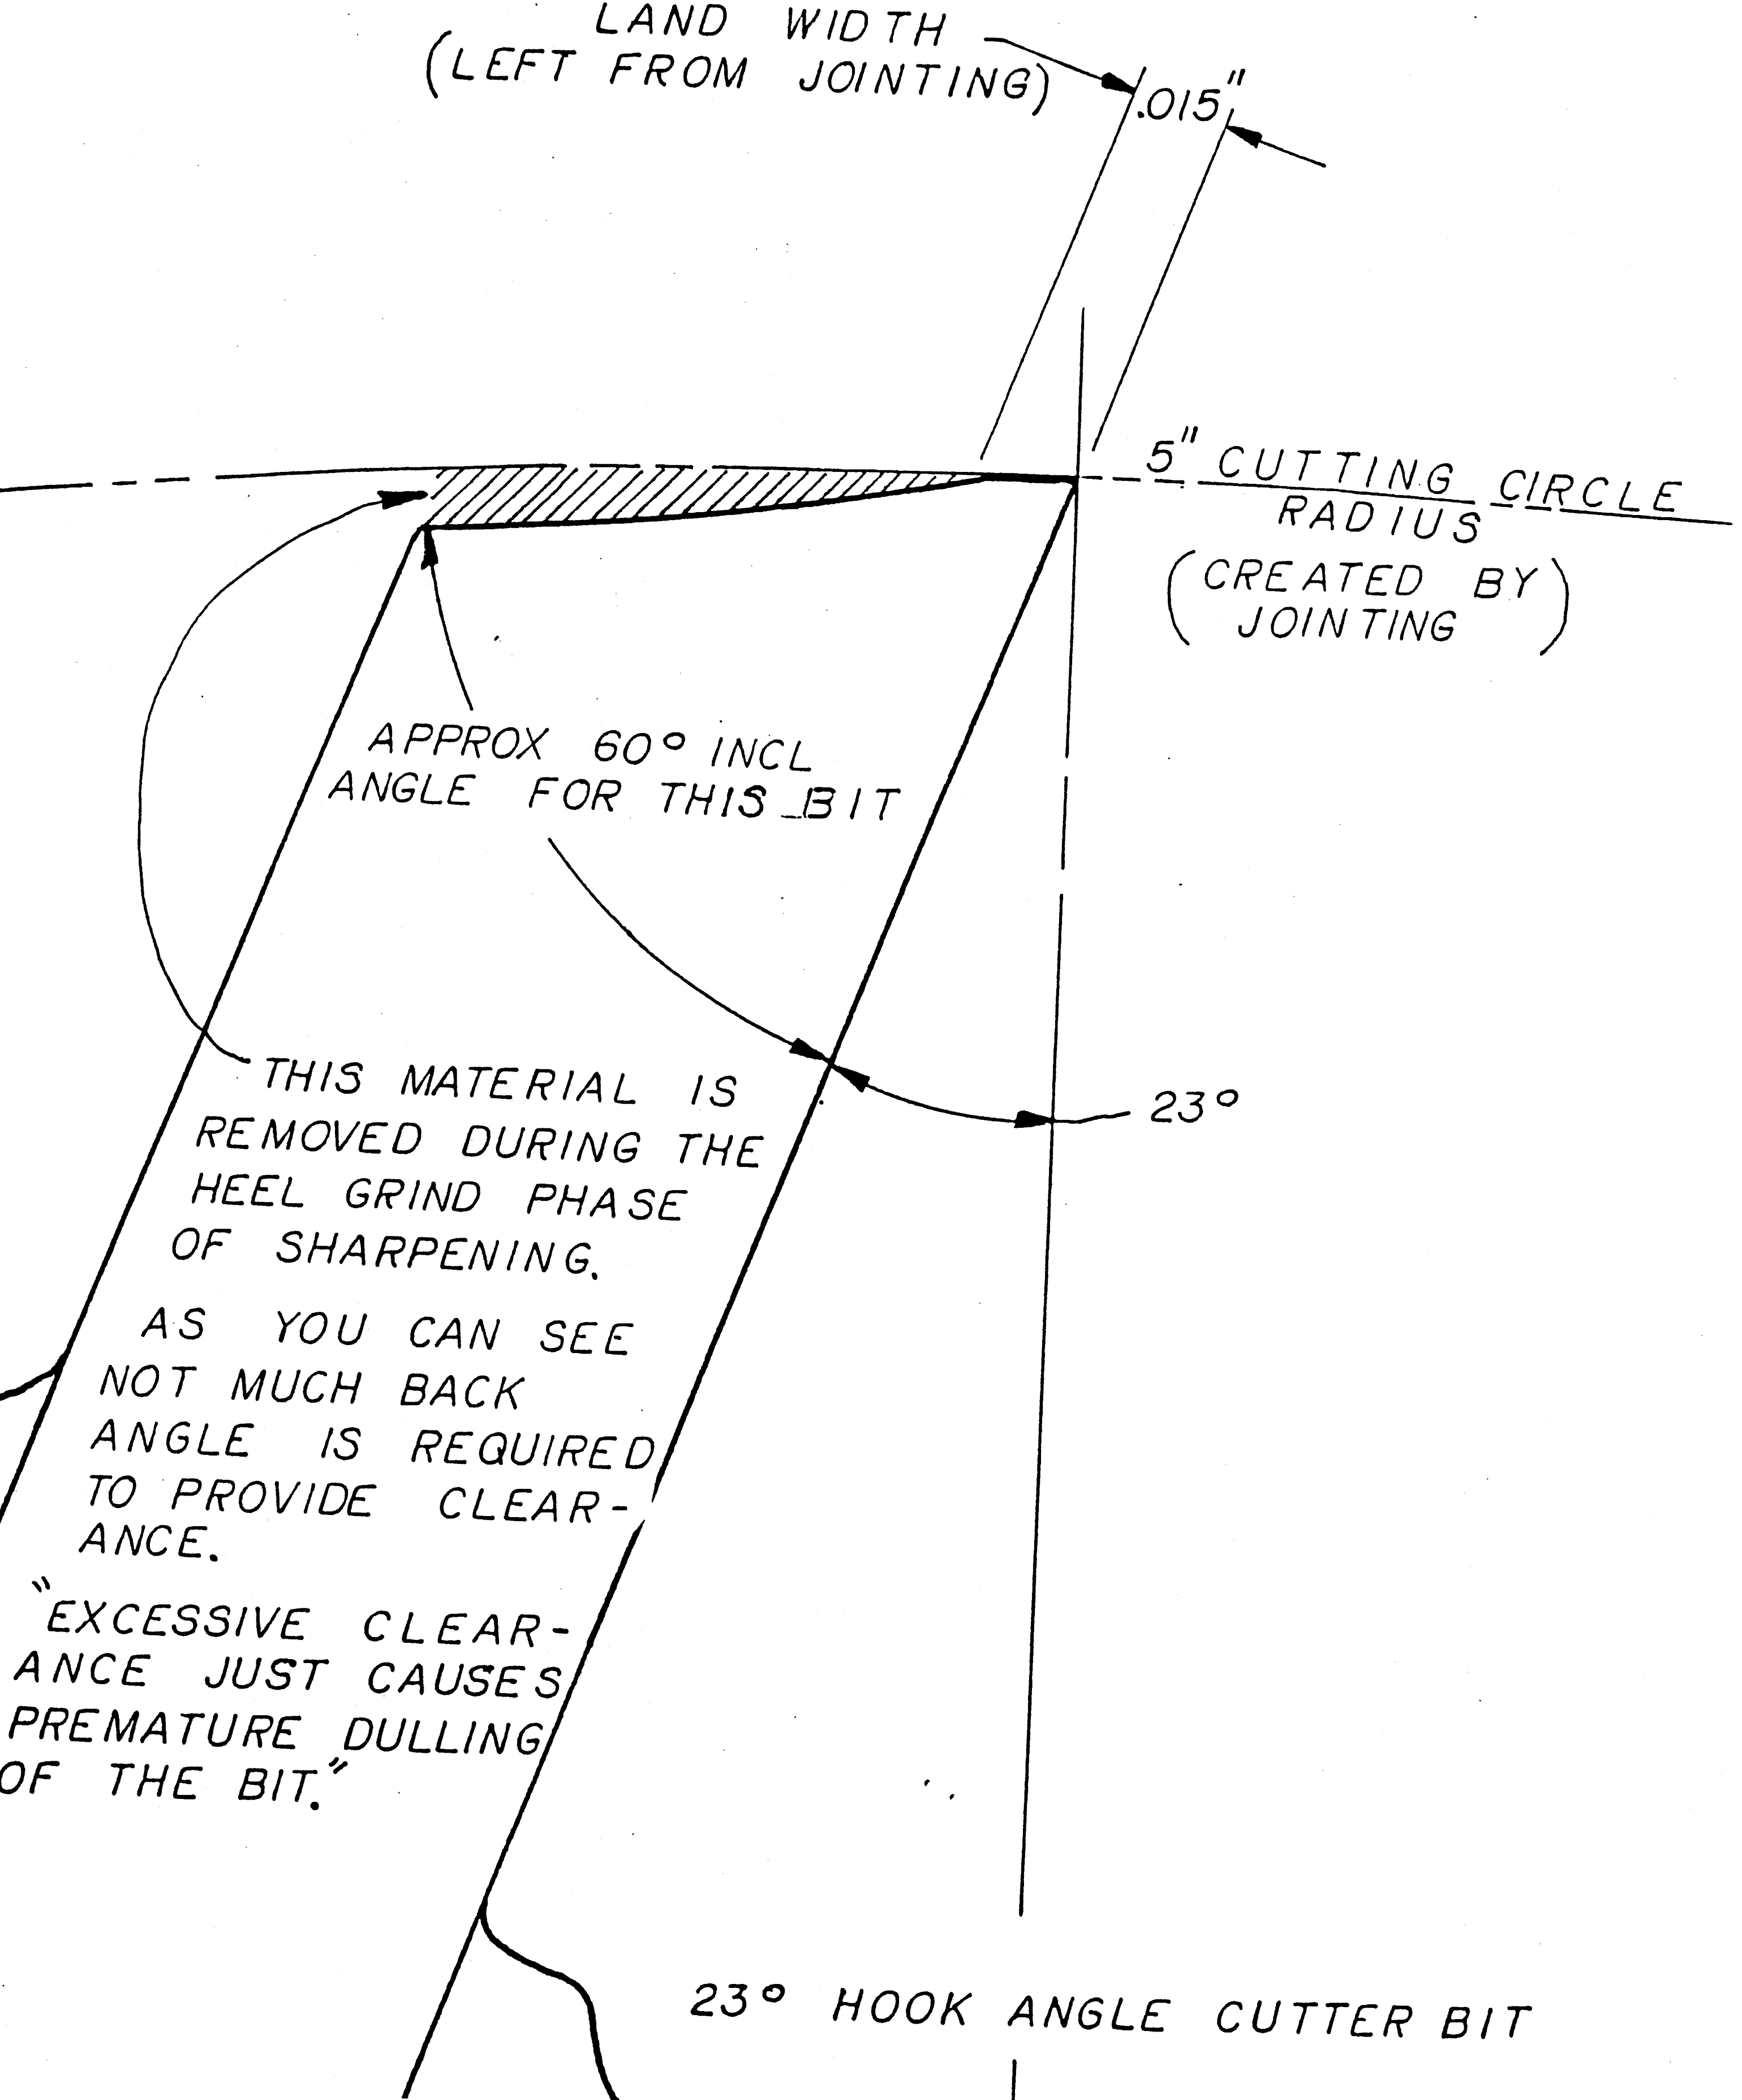 LAND WIDTH
(LEFT FROM JOINTING)
.015"
5" CUTTING CIRCLE
RADIUS
(CREATED BY
JOINTING)
APPROX 60° INCL
ANGLE FOR THIS BIT
23°
THIS MATERIAL IS
REMOVED DURING THE
HEEL GRIND PHASE
OF SHARPENING.
AS YOU CAN SEE
NOT MUCH BACK
ANGLE IS REQUIRED
TO PROVIDE CLEAR-
ANCE.
"EXCESSIVE CLEAR-
ANCE JUST CAUSES
PREMATURE DULLING
OF THE BIT."
23° HOOK ANGLE CUTTER BIT